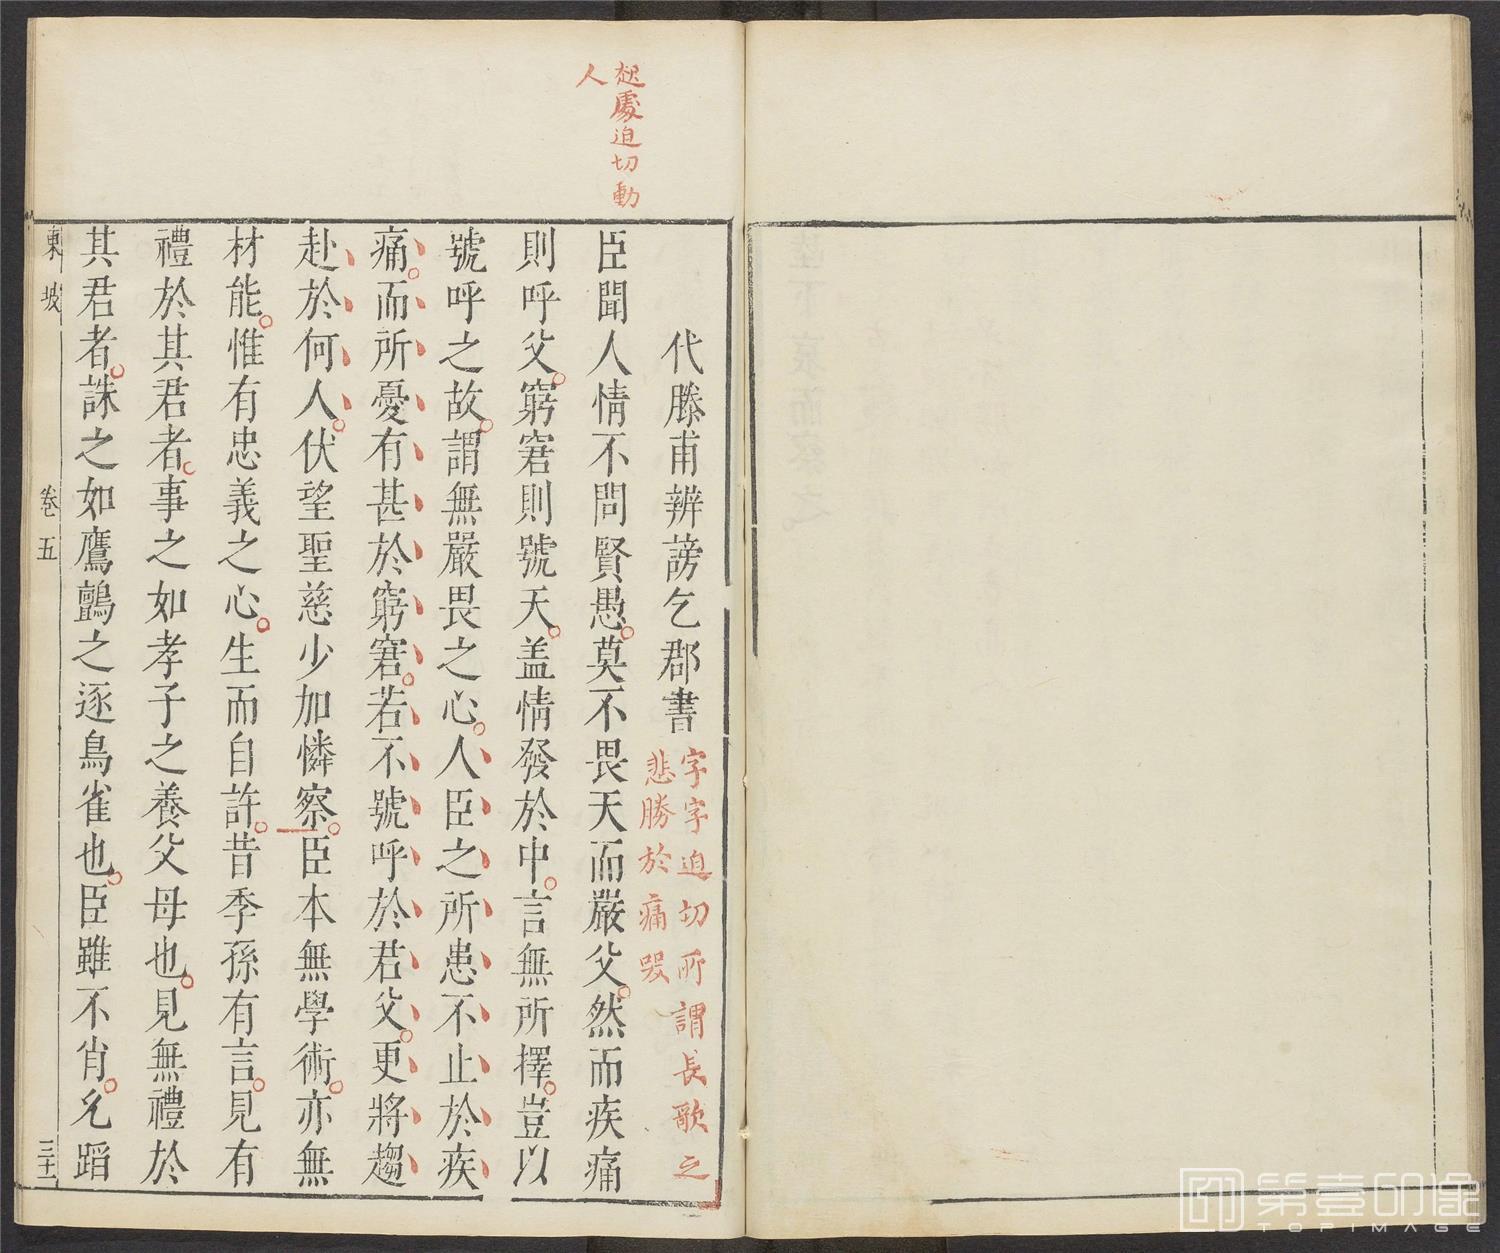 起處迫切動
人
代滕甫辨謗乞郡書
字字迫切所謂長歌之
悲勝於痛哭
臣聞人情不問賢愚莫不畏天而嚴父然而疾痛
則呼父窮窘則號天蓋情發於中言無所擇豈以
號呼之故謂無嚴畏之心人臣之所患不止於疾
痛而所憂有甚於窮窘若不號呼於君父更將趨
赴於何人伏望聖慈少加憐察臣本無學術亦無
材能惟有忠義之心生而自許昔季孫有言見有
禮於其君者事之如孝子之養父母也見無禮於
其君者誅之如鷹鸇之逐鳥雀也臣雖不肖允蹈
東坡
卷五
三十一
第壹印像
TOPIMAGE